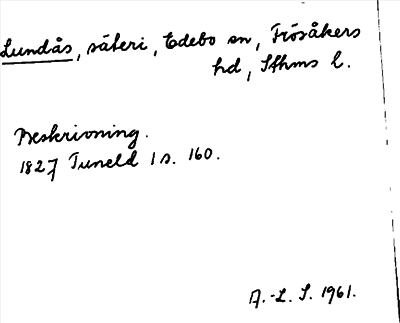 Lundås, säteri, Edebo sn, Frösåkers
hd, Sthms l.
Beskrivning.
1827 Tuneld 1 s. 160.
A.-L. S. 1961.